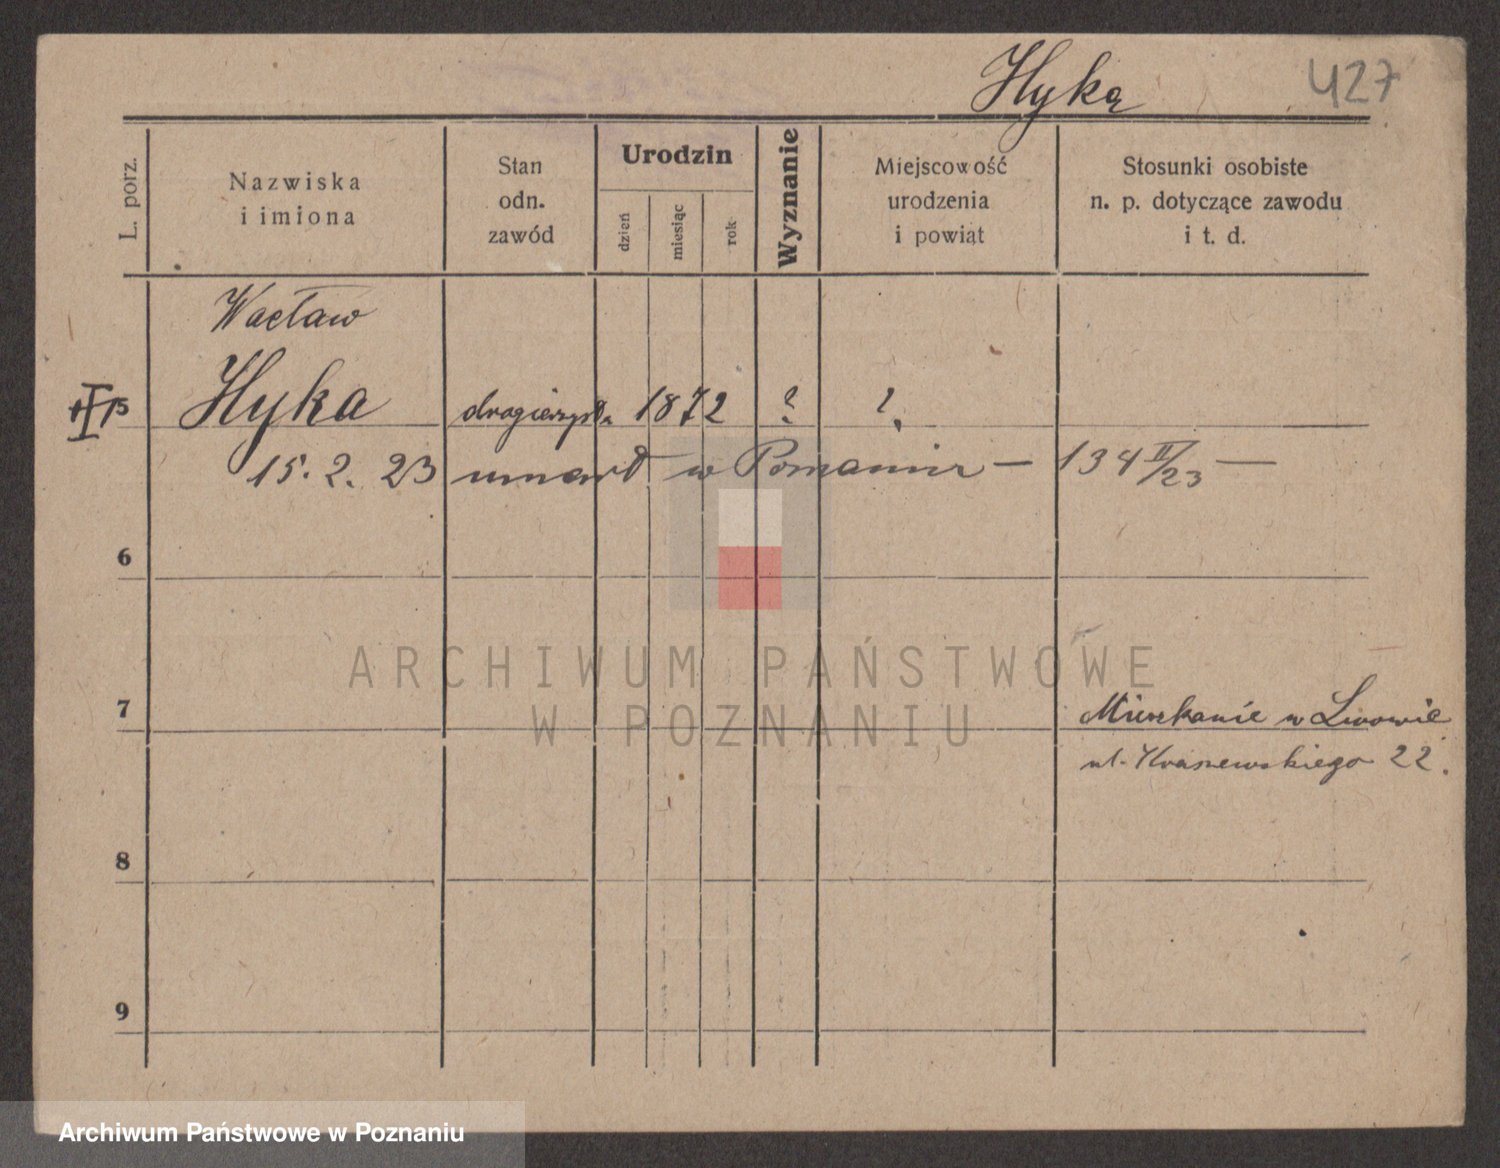 Hyką 427
L. porz.
Nazwiska
i imiona
Stan
odn.
zawód
Urodzin
dzień
miesiąc
rok
Wyznanie
Miejscowość
urodzenia
i powiat
Stosunki osobiste
n. p. dotyczące zawodu
i t. d.
Wacław
5 Hyka 1872 ? ?
15. 2. 23 umarł w Poznaniu — 134 II/23 —
6
ARCHIWUM PAŃSTWOWE
W POZNANIU
7 Mieszkanie w Lwowie
ul. Kraszewskiego 22.
8
9
Archiwum Państwowe w Poznaniu